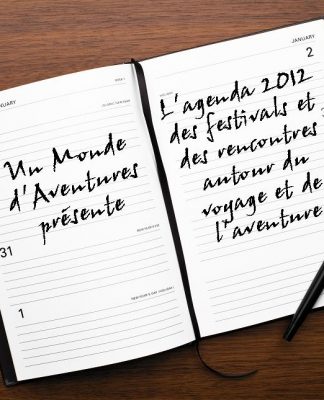 JANUARY
Un Monde
d'Aventures
présente
31
1
JANUARY
2
L'agenda 2012
des festivals et
des rencontres
autour du
voyage et de
l'aventure